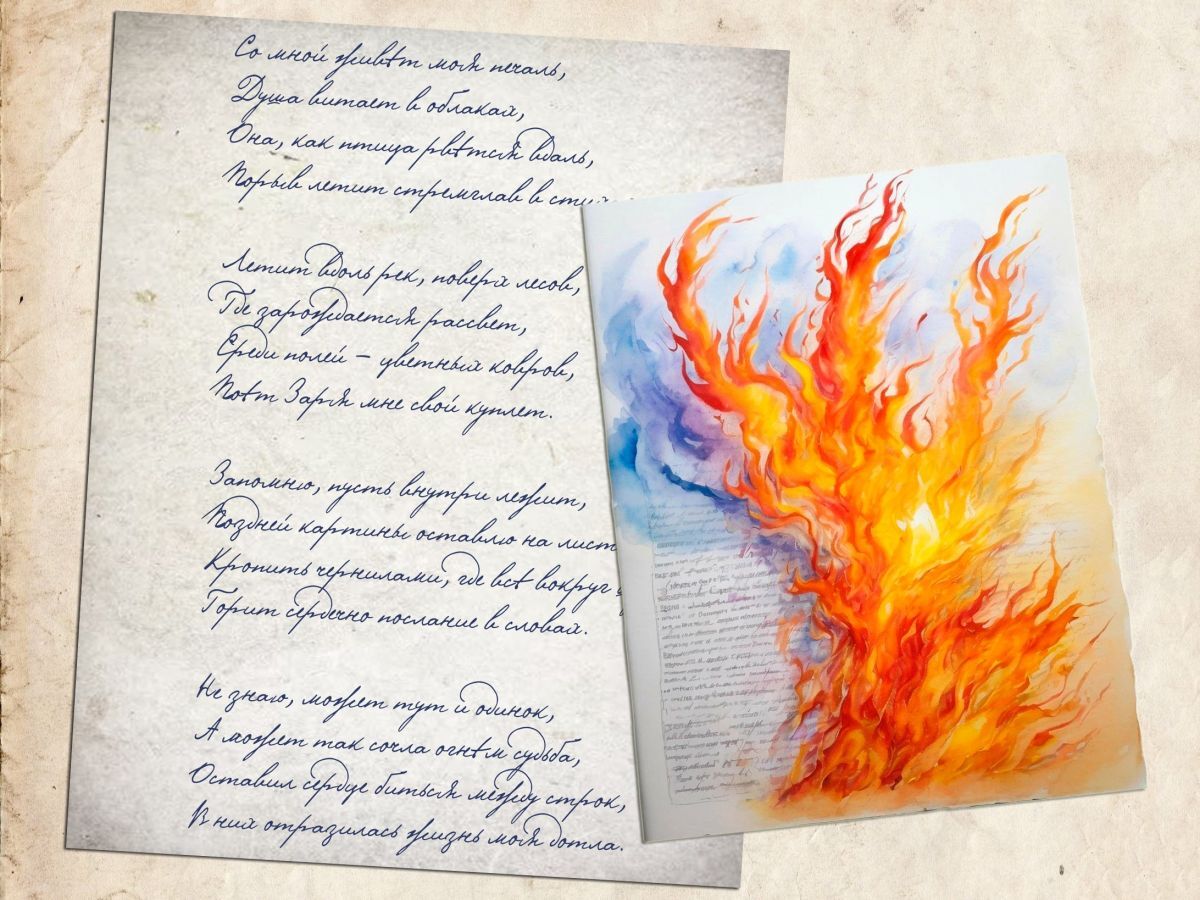 Со мной живёт моя печаль,
Душа витает в облаках,
Она, как птица рвётся вдаль,
Порыв летит стремглав в
Летит вдоль рек, поверх лесов,
Где зарождается рассвет,
Среди полей – цветных ковров,
Поёт Заря мне свой куплет.
Запомню, пусть внутри лежит,
Поздней картины оставлю на
Кропить чернилами, где всё вокруг
Горит сердечно послание в словах.
Не знаю, может тут и одинок,
А может так сочла огнём судьба,
Оставил сердце биться между строк,
В них отразилась жизнь моя дотла.